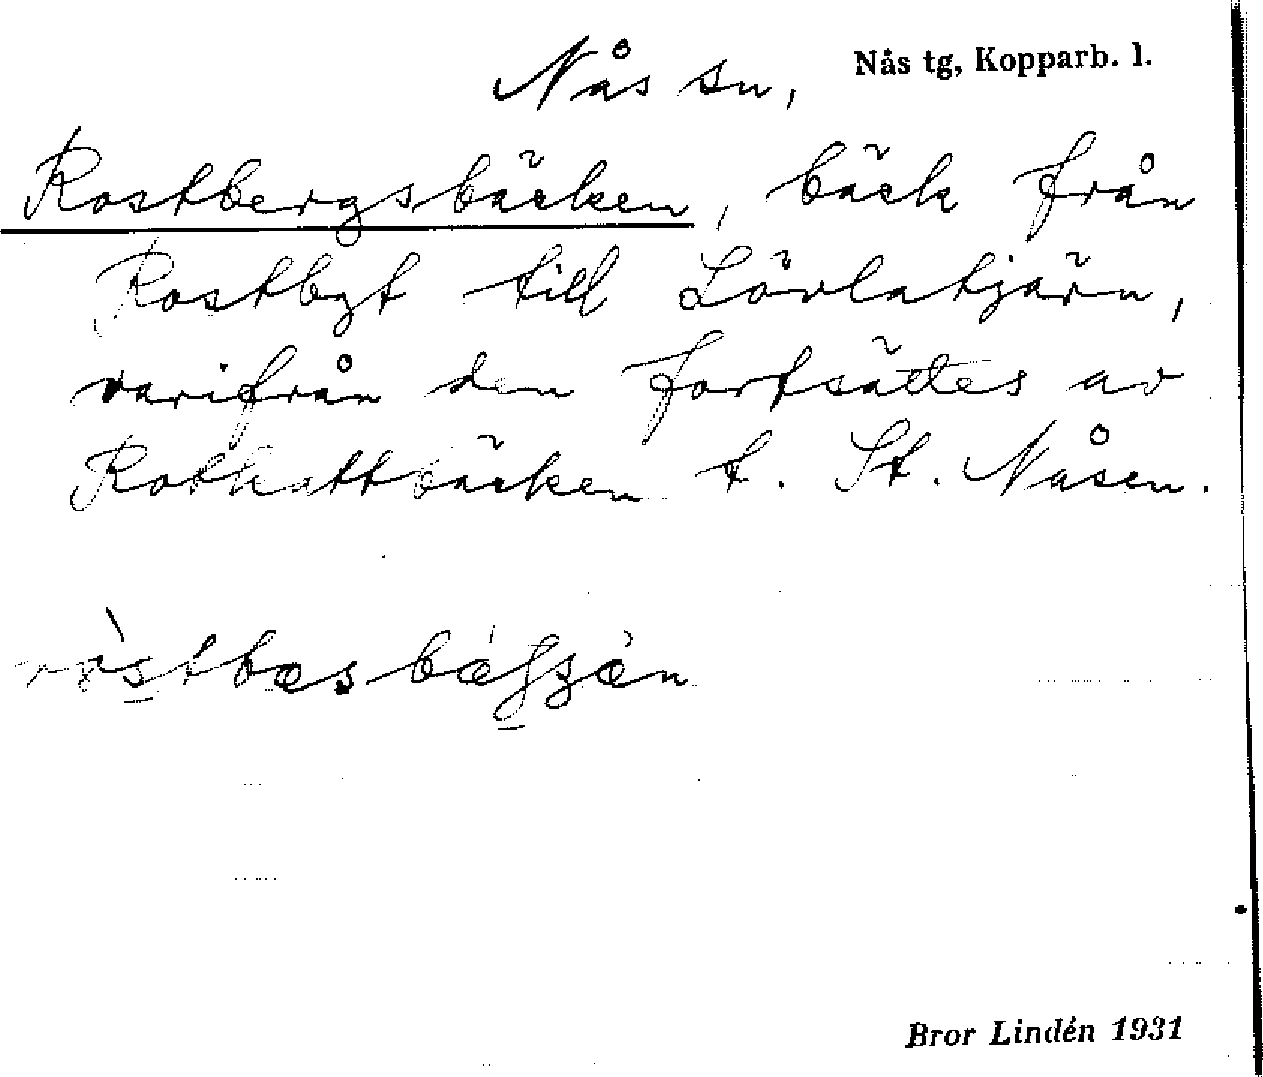 Nås sn, Nås tg, Kopparb. l.
Rostbergsbäcken, bäck från
Rostbgt till Lövlatjärn,
varifrån den fortsättes av
Rothattbäcken t. St. Nåsen.
Bror Lindén 1931